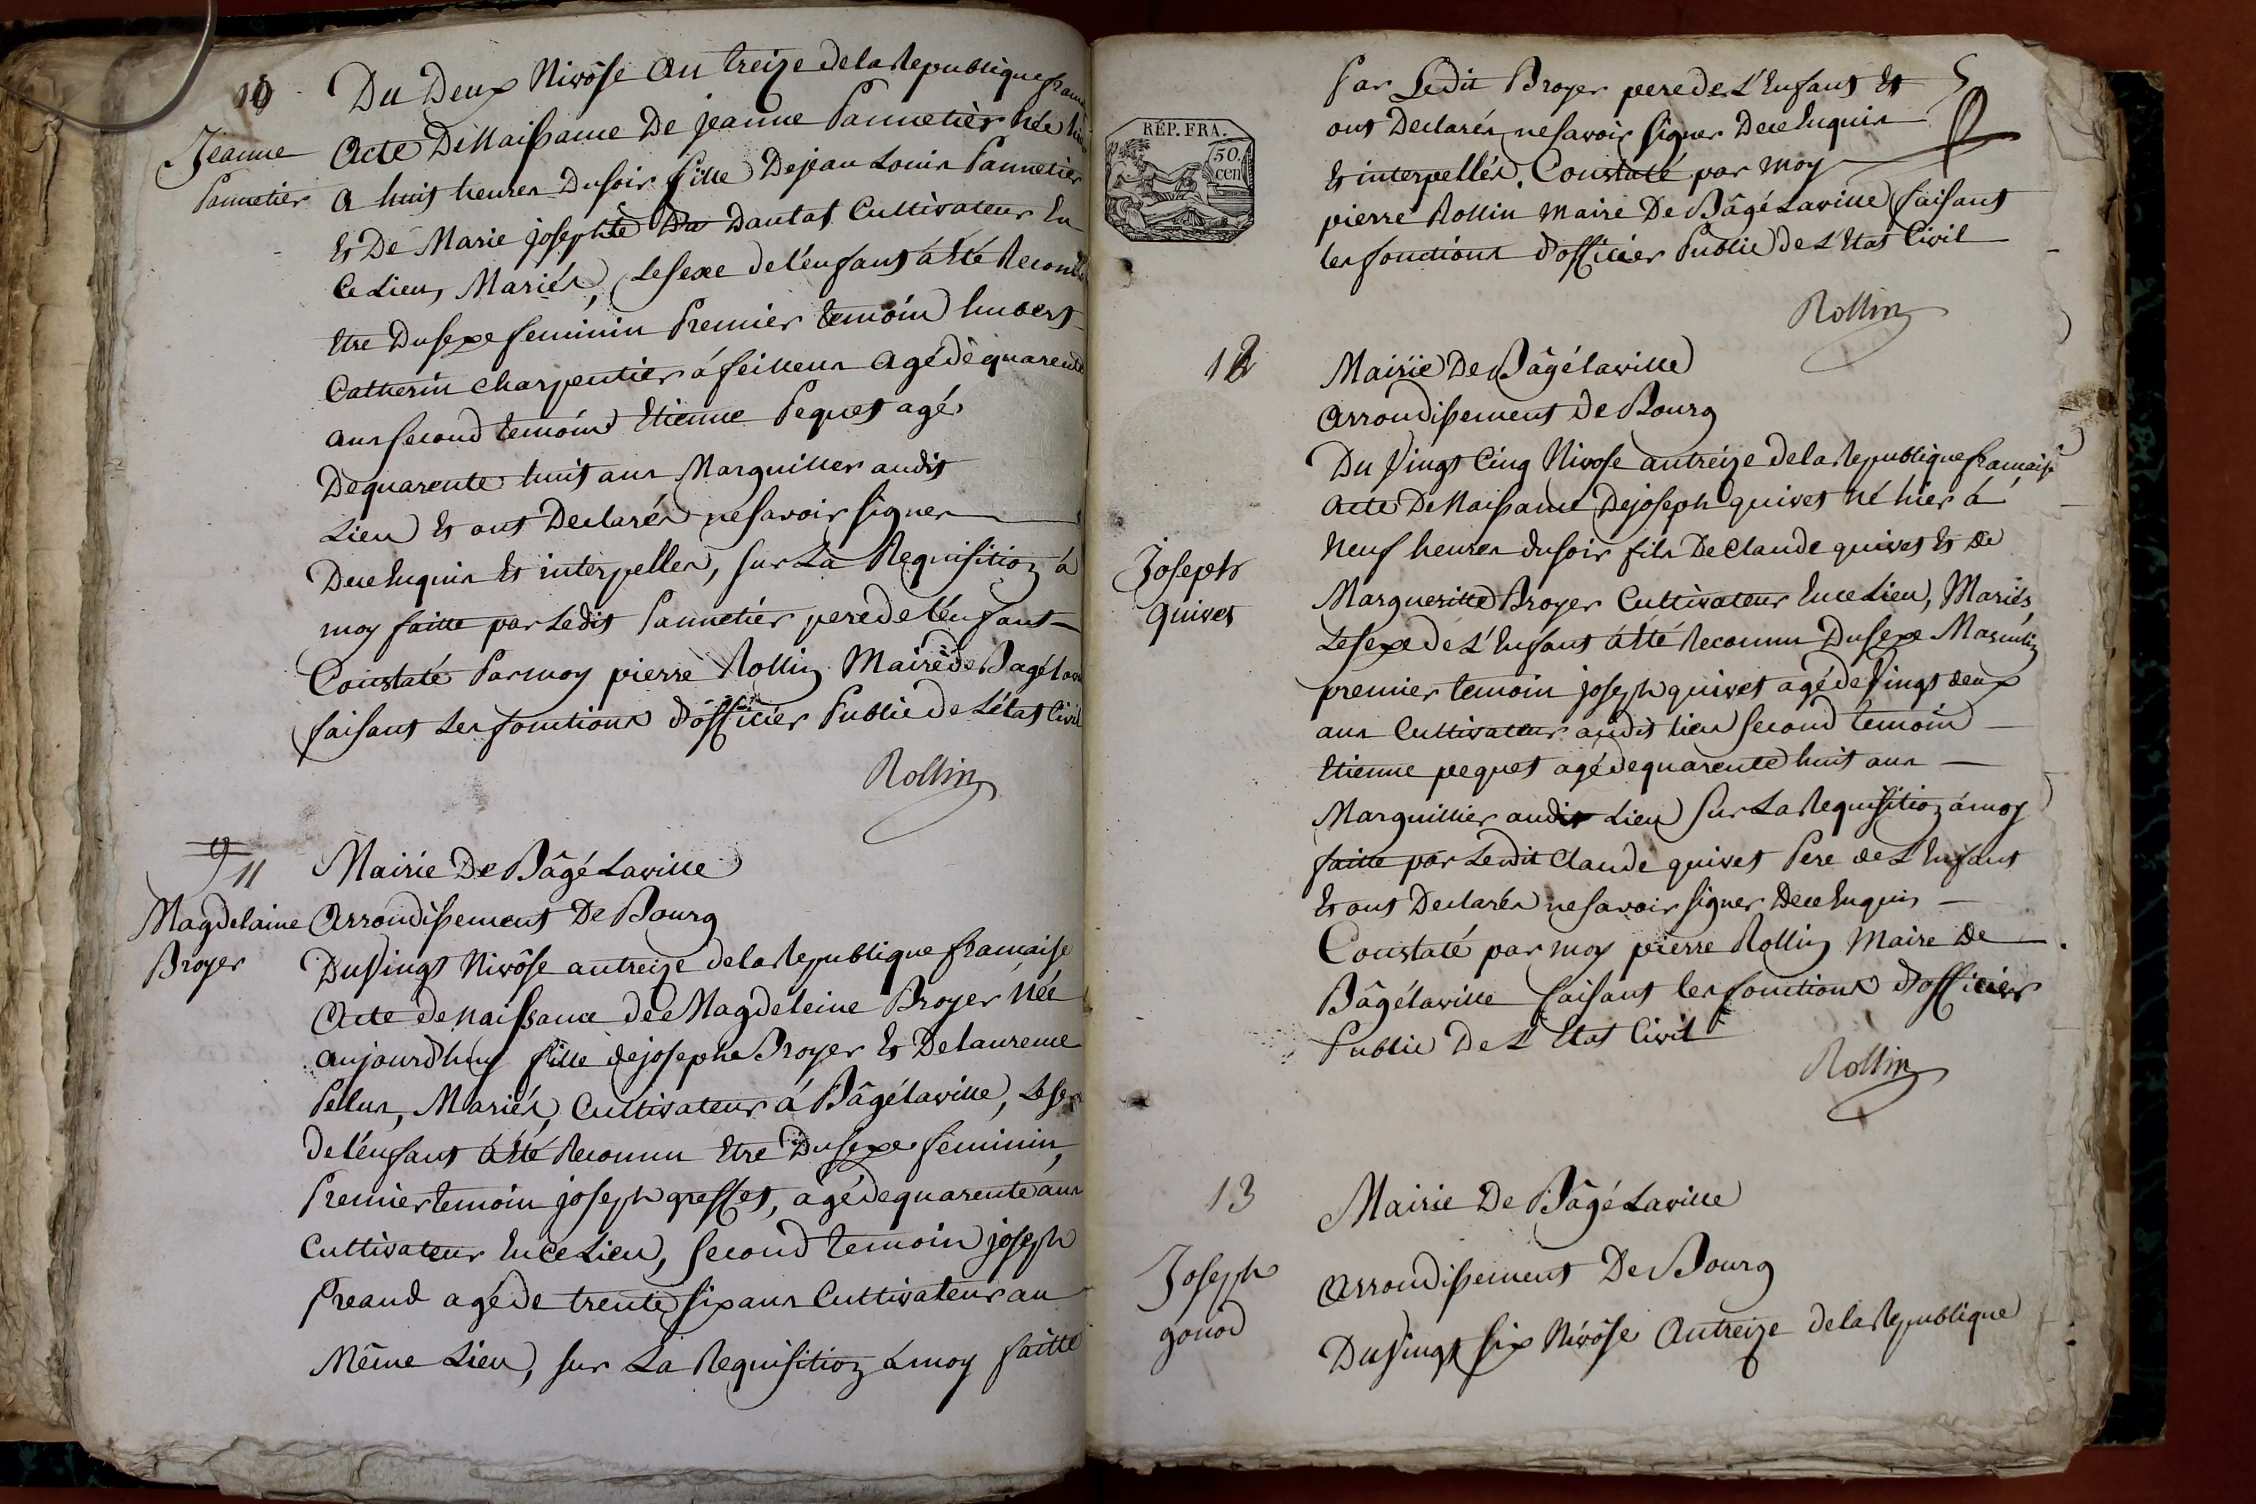 10
Du Deux Nivôse an treize de la Republique fran
Jeanne
Pannetier
Acte De Naissance De jeanne Pannetier Née hier
a huit heures Du soir fille De jean Louis Pannetier
Et De Marie josephte Dautat Cultivateur En
Ce Lieu, Mariés, Le sexe de l'enfant á Eté Reconnu
Etre Du sexe feminin Premier temoin hubert
Catherin charpentier á feillens agé de quarente
ans second temoin Etienne Pequet agé
De quarente huit ans Marguiller audit
Lieu Et ont Declarés ne savoir signer
De ce Enquis et interpellés, sur La Requisition á
moy faitte par Ledit Pannetier pere de l'enfant
Constaté Par moy pierre Rollin Maire de Bagé Lavi
faisant Les fonctions d'officier Public de L'état Civil
Rollin
9
11
Mairie De Bâgé Laville
Magdelaine
Broyer
Arrondissement De Bourg
Du Vingt Nivôse an treize de la Republique francaise
Acte de naissance de Magdeleine Broyer Née
aujourdhuy fille de josephe Broyer Et De laurence
Pellus, Mariés, Cultivateur á Bâgé laville, Le sex
de l'enfant á Eté Reconnu Etre Du sexe feminin,
Premier temoin joseph greffet, agé de quarente ans
Cultivateur En ce Lieu, second temoin joseph
Preaud agé de trente six ans Cultivateur au
Même Lieu, sur La Requisition á moy faitte
5
RÉP. FRA.
50.
cen
Par Ledit Broyer pere de L'Enfant Et
ont Declarés ne savoir signer De ce Enquis
Et interpellés. Constaté par moy
pierre Rollin maire De Bâgé Laville faisant
les fonctions d'officier Public de L'Etat Civil
Rollin
12
Mairie De Bâgé laville
Arrondissement de Bourg
Du Vingt Cinq Nivose an treize de la Republique francaise
Acte De Naissance De joseph quivet Né hier á
Joseph
quivet
Neuf heures du soir fils De Claude quivet Et de
Margueritte Broyer Cultivateur En ce Lieu, Mariés
Le sexe de L'Enfant á Eté Reconnu Du sexe Masculin
premier temoin joseph quivet agé de Vingt deux
ans Cultivateur audit lieu second temoin
Etienne pequet agé de quarente huit ans
Marguillier audit Lieu sur La Requisition á moy
faitte par Ledit Claude quivet Pere de L'Enfant
Et ont Declarés ne savoir signer De ce Enquis
Constaté par moy pierre Rollin Maire De
Bâgé laville faisant les fonctions d'officier
Public De L'Etat Civil
Rollin
13
Mairie De Bâgé Laville
Joseph
gonod
Arrondissement De Bourg
Du Vingt six Nivôse An treize de la Republique